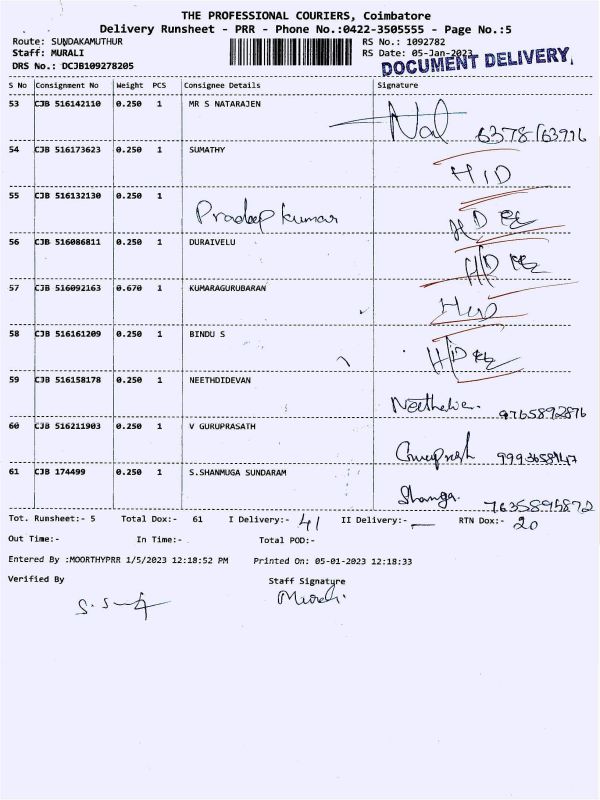 THE PROFESSIONAL COURIERS, Coimbatore
Delivery Runsheet - PRR - Phone No.:0422-3505555 - Page No.:5
Route: SUNDAKAMUTHUR RS No.: 1092782
Staff: MURALI RS Date: 05-Jan-2023
DRS No.: DCJB109278205 DOCUMENT DELIVERY
S No Consignment No Weight PCS Consignee Details Signature
53 CJB 516142110 0.250 1 MR S NATARAJEN
54 CJB 516173623 0.250 1 SUMATHY H/D
55 CJB 516132130 0.250 1 Pradeep kumar H/D
56 CJB 516086811 0.250 1 DURAIVELU H/D
57 CJB 516092163 0.670 1 KUMARAGURUBARAN H/D
58 CJB 516161209 0.250 1 BINDU S H/D
59 CJB 516158178 0.250 1 NEETHDIDEVAN 9765892876
60 CJB 516211903 0.250 1 V GURUPRASATH
61 CJB 174499 0.250 1 S.SHANMUGA SUNDARAM
Tot. Runsheet:- 5 Total Dox:- 61 I Delivery:- 41 II Delivery:- — RTN Dox:- 20
Out Time:- In Time:- Total POD:-
Entered By :MOORTHYPRR 1/5/2023 12:18:52 PM Printed On: 05-01-2023 12:18:33
Verified By Staff Signature
Murali